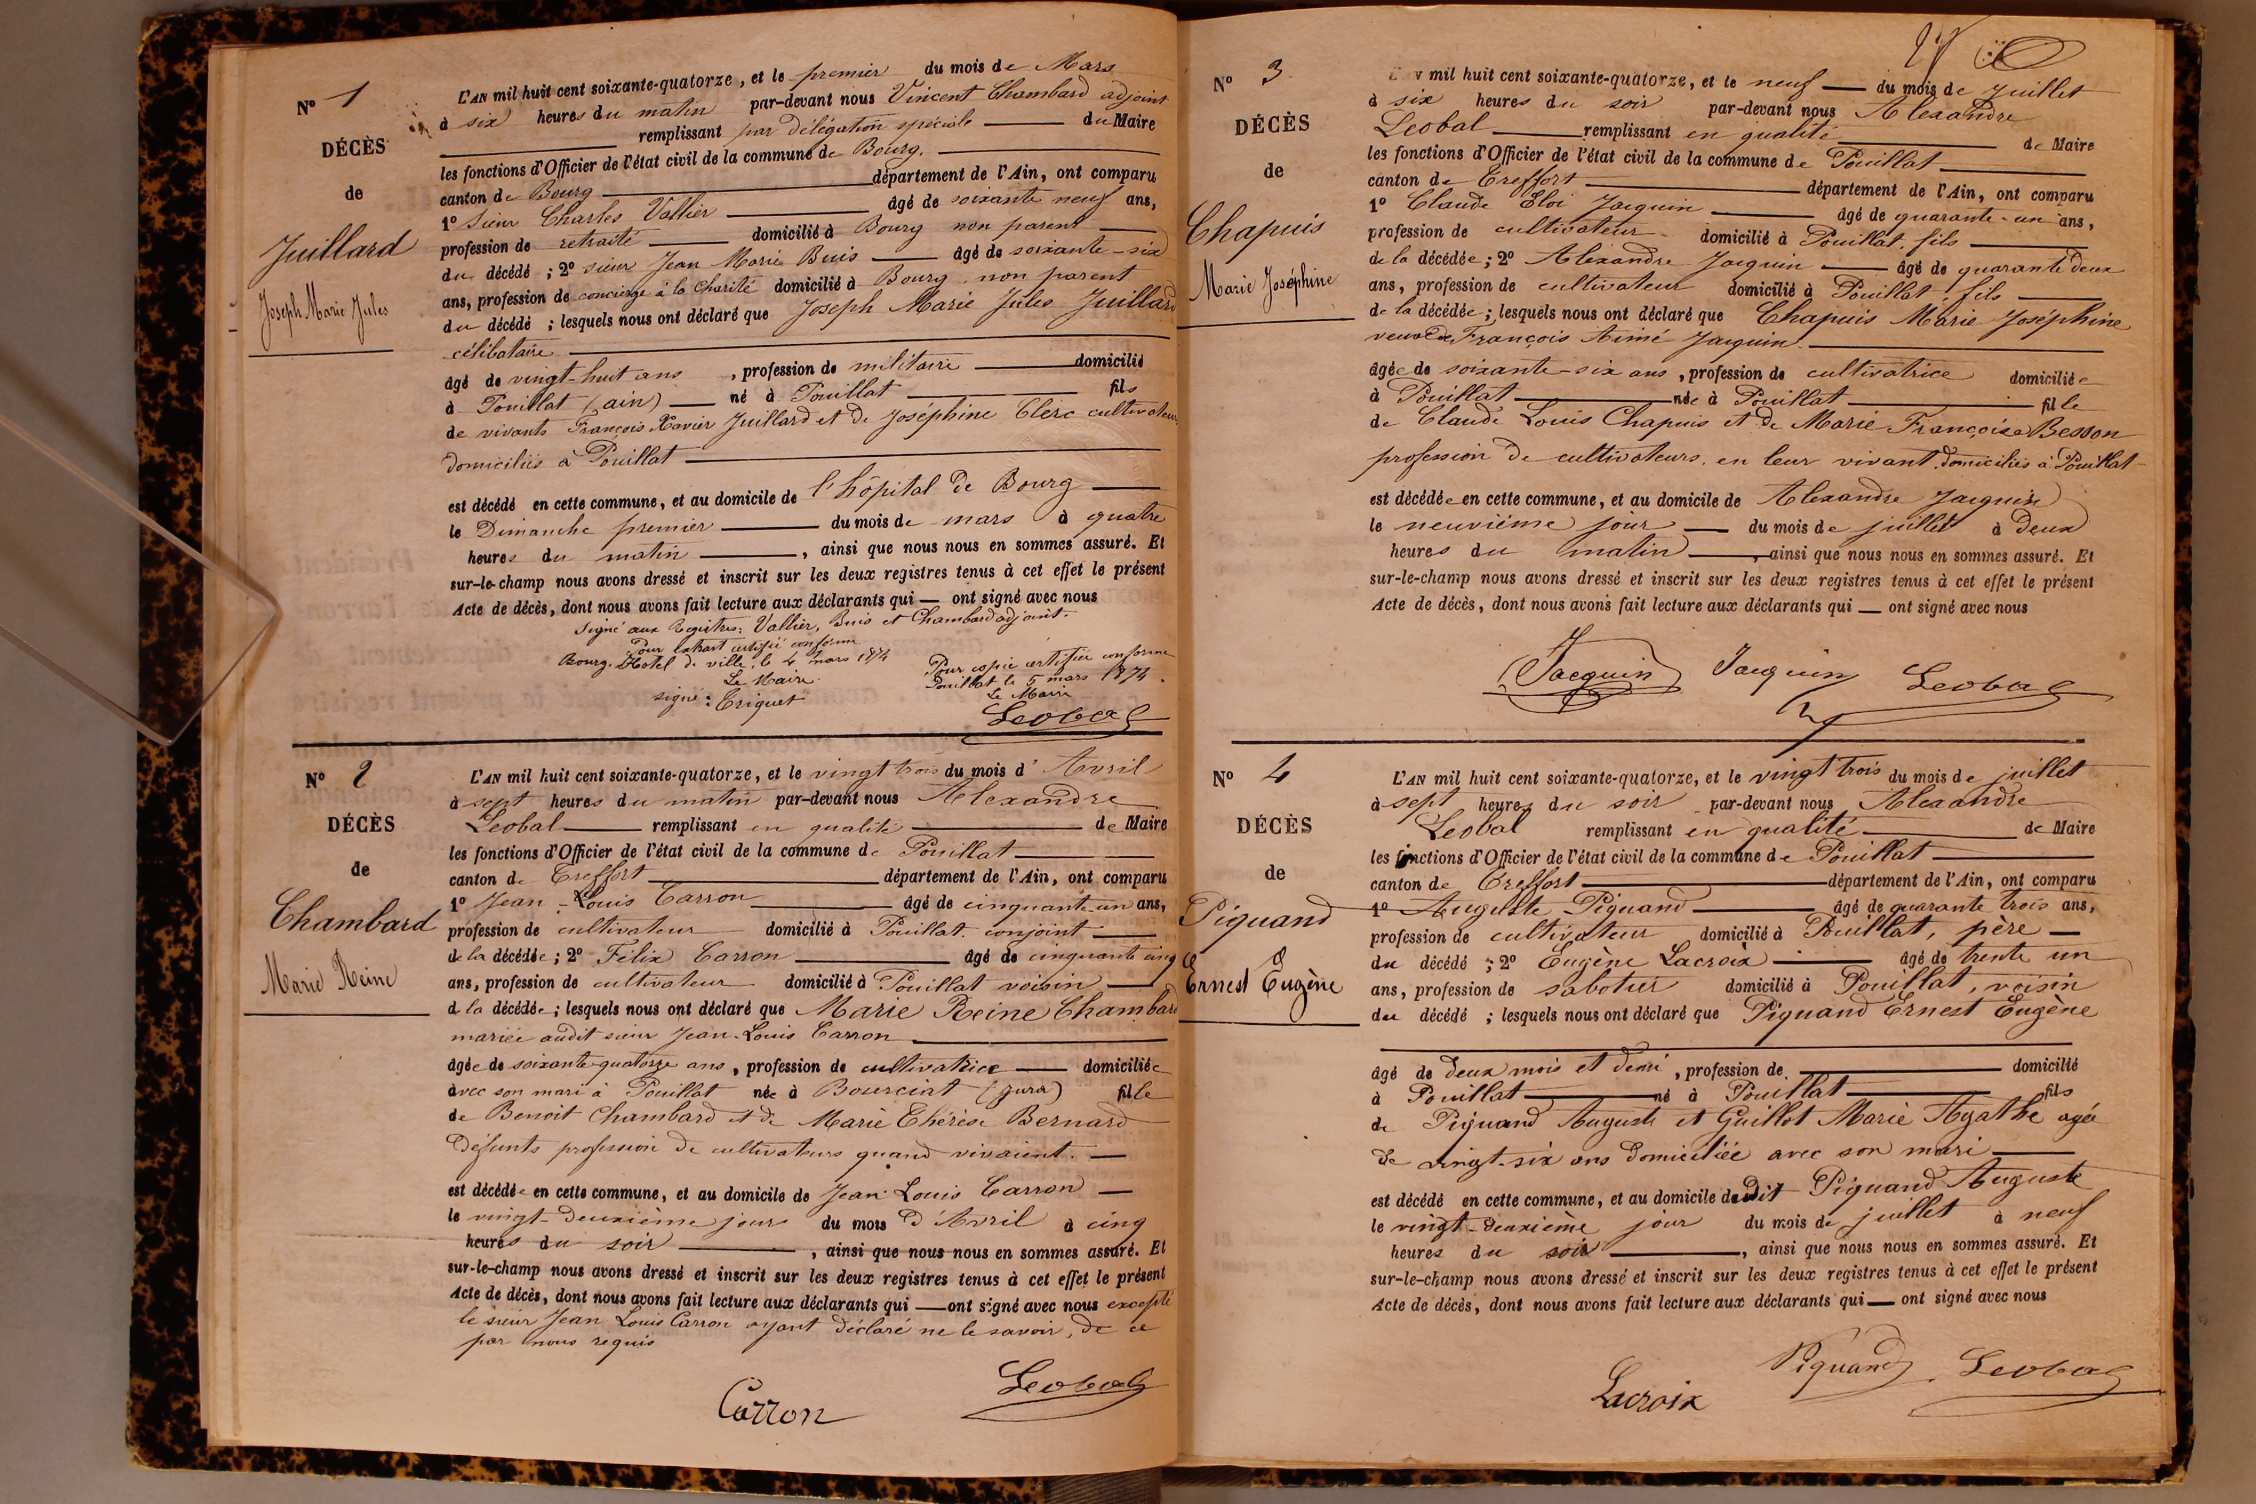 Nº 1
DÉCÈS
de
Juillard
Joseph Marie Jules
L'AN mil huit cent soixante-quatorze, et le premier du mois de Mars
à six heures du matin par-devant nous Vincent Chambard adjoint
remplissant par délégation spéciale du Maire
les fonctions d'Officier de l'état civil de la commune de Bourg.
canton de Bourg département de l'Ain, ont comparu
1º Sieur Charles Vallier âgé de soixante neuf ans,
profession de retraité domicilié à Bourg non parent
du décédé ; 2º sieur Jean Marie Buis âgé de soixante-six
ans, profession de concierge à la Charité domicilié à Bourg non parent
du décédé ; lesquels nous ont déclaré que Joseph Marie Jules Juillard
célibataire
âgé de vingt-huit ans , profession de militaire domicilié
à Pouillat (ain) né à Pouillat fils
de vivants François Xavier Juillard et de Joséphine Clerc cultivateurs
domiciliés à Pouillat
est décédé en cette commune, et au domicile de l'hôpital de Bourg
le Dimanche premier du mois de mars à quatre
heures du matin , ainsi que nous nous en sommes assuré. Et
sur-le-champ nous avons dressé et inscrit sur les deux registres tenus à cet effet le présent
Acte de décès, dont nous avons fait lecture aux déclarants qui ont signé avec nous
Signé aux Registres: Vallier, Buis et Chambard adjoint.
Pour extrait certifié conforme
Bourg. Hotel de ville, le 4 mars 1874
Le Maire
signé: Triquet
Pour copie certifiée conforme
Pouillat le 5 mars 1874.
Le Maire
Leobal
Nº 2
DÉCÈS
de
Chambard
Marie Reine
L'AN mil huit cent soixante-quatorze, et le vingt trois du mois d' Avril
à sept heures du matin par-devant nous Alexandre
Leobal remplissant en qualité de Maire
les fonctions d'Officier de l'état civil de la commune de Pouillat
canton de Treffort département de l'Ain, ont comparu
1º Jean-Louis Carron âgé de cinquante-un ans,
profession de cultivateur domicilié à Pouillat. conjoint
de la décédée ; 2º Félix Carron âgé de cinquante cinq
ans, profession de cultivateur domicilié à Pouillat voisin
d la décédée ; lesquels nous ont déclaré que Marie Reine Chambard
mariée audit sieur Jean-Louis Carron
âgée de soixante-quatorze ans, profession de cultivatrice domiciliée
avec son mari à Pouillat née à Bourciat (Jura) fille
de Benoit Chambard et de Marie Thérèse Bernard
défunts profession de cultivateurs quand vivaient.
est décédée en cette commune, et au domicile de Jean-Louis Carron
le vingt-deuxième jour du mois d'Avril à cinq
heures du soir , ainsi que nous nous en sommes assuré. Et
sur-le-champ nous avons dressé et inscrit sur les deux registres tenus à cet effet le présent
Acte de décès, dont nous avons fait lecture aux déclarants qui ont signé avec nous excepté
le sieur Jean Louis Carron ayant déclaré ne le savoir, de ce
par nous requis
Carron
Leobal
Nº 3
DÉCÈS
de
Chapuis
Marie Joséphine
mil huit cent soixante-quatorze, et le neuf du mois de Juillet
à six heures du soir par-devant nous Alexandre
Leobal remplissant en qualité de Maire
les fonctions d'Officier de l'état civil de la commune de Pouillat
canton de Treffort département de l'Ain, ont comparu
1º Claude Eloi Jacquin âgé de quarante-un ans,
profession de cultivateur domicilié à Pouillat, fils
de la décédée ; 2º Alexandre Jacquin âgé de quarante deux
ans, profession de cultivateur domicilié à Pouillat, fils
de la décédée ; lesquels nous ont déclaré que Chapuis Marie Joséphine
veuve de François Aimé Jacquin.
âgée de soixante-six ans, profession de cultivatrice domiciliée
à Pouillat née à Pouillat fille
de Claude Louis Chapuis et de Marie-Françoise Besson
profession de cultivateurs en leur vivant domiciliés à Pouillat
est décédée en cette commune, et au domicile de Alexandre Jacquin
le neuvième jour du mois de juillet à deux
heures du matin , ainsi que nous nous en sommes assuré. Et
sur-le-champ nous avons dressé et inscrit sur les deux registres tenus à cet effet le présent
Acte de décès, dont nous avons fait lecture aux déclarants qui ont signé avec nous
Jacquin Jacquin Leobal
Nº 4
DÉCÈS
de
Piquand
Ernest Eugène
L'AN mil huit cent soixante-quatorze, et le vingt trois du mois de juillet
à sept heures du soir par-devant nous Alexandre
Leobal remplissant en qualité de Maire
les fonctions d'Officier de l'état civil de la commune de Pouillat
canton de Treffort département de l'Ain, ont comparu
1º Auguste Piquand âgé de quarante trois ans,
profession de cultivateur domicilié à Pouillat, père
du décédé ; 2º Eugène Lacroix âgé de trente un
ans, profession de sabotier domicilié à Pouillat, voisin
du décédé ; lesquels nous ont déclaré que Piquand Ernest Eugène
âgé de deux mois et demi , profession de domicilié
à Pouillat né à Pouillat fils
de Piquand Auguste et Guillot Marie Agathe agée
de vingt-six ans domiciliée avec son mari
est décédé en cette commune, et au domicile dudit Piquand Auguste
le vingt-deuxième jour du mois de juillet à neuf
heures du soir , ainsi que nous nous en sommes assuré. Et
sur-le-champ nous avons dressé et inscrit sur les deux registres tenus à cet effet le présent
Acte de décès, dont nous avons fait lecture aux déclarants qui ont signé avec nous
Piquand Leobal
Lacroix